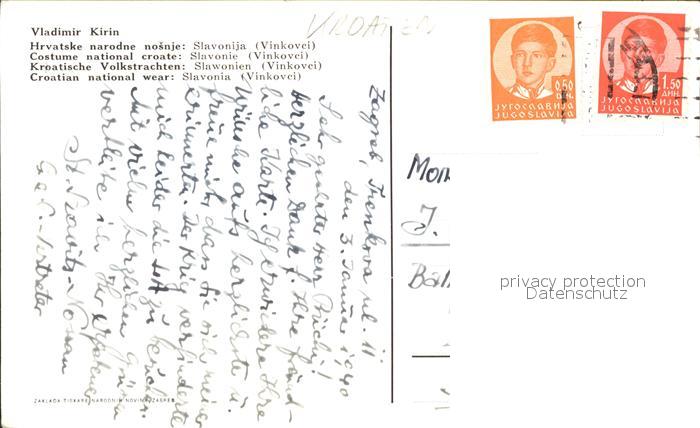 Vladimir Kirin
Hrvatske narodne nošnje: Slavonija (Vinkovci)
Costume national croate: Slavonie (Vinkovci)
Kroatische Volkstrachten: Slawonien (Vinkovci)
Croatian national wear: Slavonia (Vinkovci)
0,50
ДИН.
ЈУГОСЛАВИЈА
JUGOSLAVIJA
1.50
ДИН.
ЈУГОСЛАВИЈА
JUGOSLAVIJA
Zagreb, Trenkova ul. 11
den 3. Januar 1940
Sehr geehrter Herr
Herzlichen Dank f. Ihre freund-
liche Karte. Ich erwidere Ihre
Wünsche aufs herzlichste u.
freue mich, dass Sie sich meiner
erinnerten. Der Krieg verhinderte
mich leider die zu
Mit vielen herzlichen Grüssen
verbleibe ich Ihr ergebener
Mon
J.
Bah
privacy protection
Datenschutz
ZAKLADA TISKARE NARODNIH NOVINA, ZAGREB